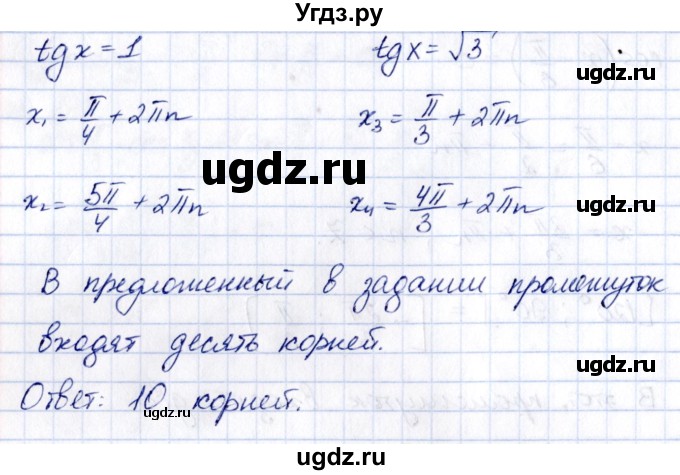 Угдз.ру
tg x = 1    tg x = √3
ugdz.ru
x₁ = π/4 + 2πn    x₃ = π/3 + 2πn
ugdz.ru
ugdz.ru
x₂ = 5π/4 + 2πn    x₄ = 4π/3 + 2πn
ugdz.ru
В предложенный в задании промежуток
входят десять корней.
ugdz.ru
Ответ: 10 корней.
ugdz.ru
ugdz.ru